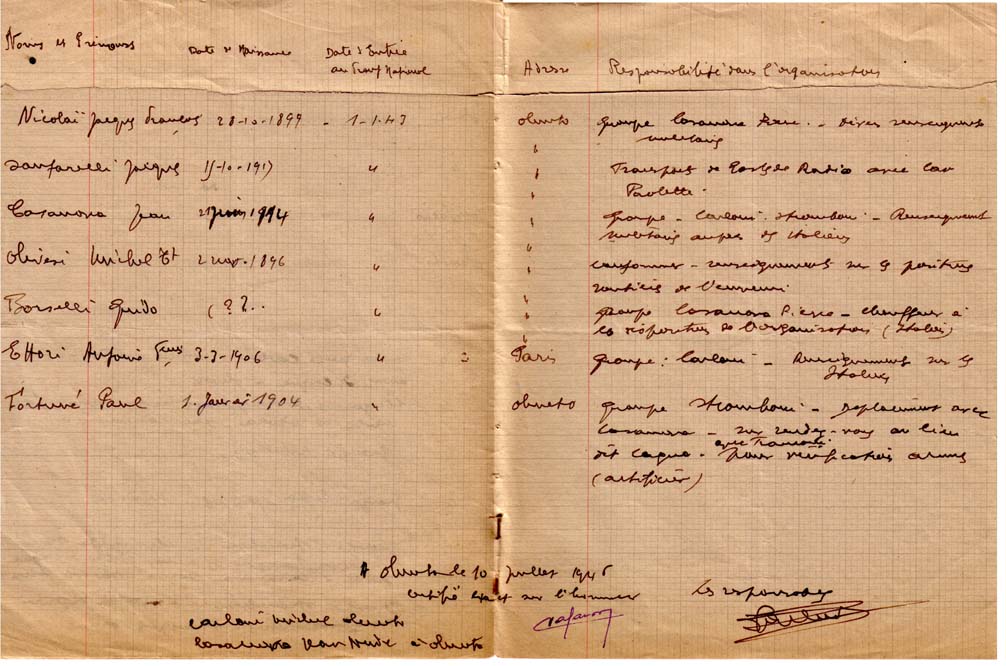 Noms et Prénoms Date de Naissance Date d'Entrée au Front National Adresse Responsabilité dans l'organisation
Nicolaï Jacques François 28-10-1899 - 1-1-43 olmeto groupe Casanova Pierre - Divers renseignements
militaires
Santarelli Jacques 15-10-1917 " " Transport de Poste de Radio avec Car
Paulette -
Casanova Jean 1914 " " groupe - Carloni - Stromboni - Renseignements
militaires auprès des Italiens
Olivesi Michel Bt 2 nov. 1896 " " renseignements sur les positions
de l'ennemi
Borselli Guido (??.. " " groupe Casanova Pierre - chauffeur à
de l'organisation (Italien)
Ettori Antoine Fçois 3-3-1906 " Paris groupe : Carloni - Renseignements sur les
Italiens
Fortuné Paul 1. Janvier 1904 " olmeto groupe Stromboni - Deplacement avec
Casanova - sur rendez-vous au lieu
dit - avec pour vérification armes
(artificier)
A olmeto le 10 Juillet 1945
certifié exact sur l'honneur Les responsables
Carloni Michel olmeto
Casanova à olmeto